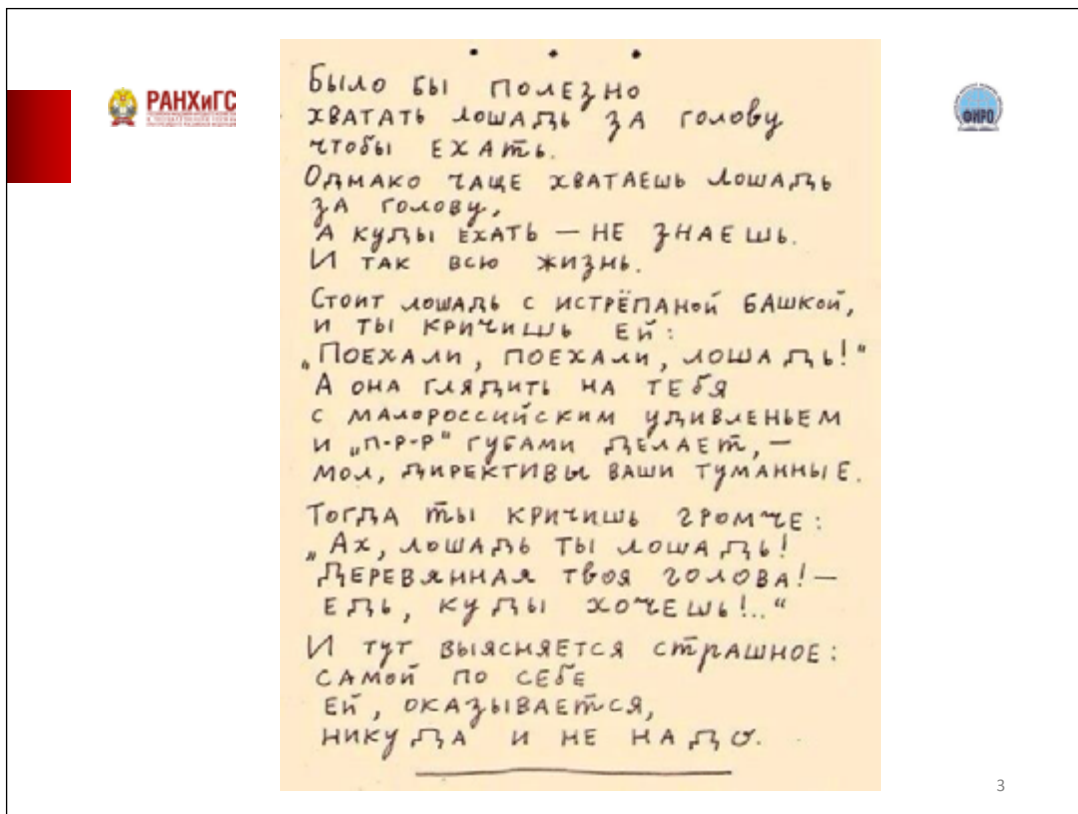 РАНХиГС
ФИРО
Было бы полезно
хватать лошадь за голову
чтобы ехать.
Однако чаще хватаешь лошадь
за голову,
А куды ехать — не знаешь.
И так всю жизнь.
Стоит лошадь с истрёпаной башкой,
и ты кричишь ей:
„Поехали, поехали, лошадь!“
А она глядить на тебя
с малороссийским удивленьем
и „п-р-р“ губами делает, —
мол, директивы ваши туманные.
Тогда ты кричишь громче:
„Ах, лошадь ты лошадь!
Деревянная твоя голова! —
Едь, куды хочешь!..“
И тут выясняется страшное:
самой по себе
ей, оказывается,
никуда и не надо.
3